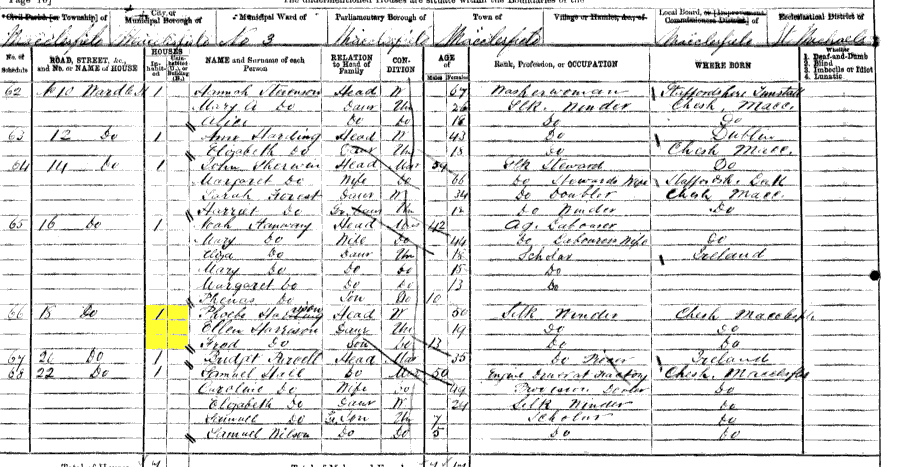 The undermentioned Houses are situate within the Boundaries of the
Civil Parish [or Township] of
City or Municipal Borough of
Municipal Ward of
Parliamentary Borough of
Town of
Village or Hamlet, &c., of
Local Board, or [Improvement Commissioners District] of
Ecclesiastical District of
Macclesfield Macclesfield No 3 Macclesfield Macclesfield Macclesfield St Michaels
No. of Schedule
ROAD, STREET, &c., and No. or NAME of HOUSE
HOUSES
Inhabited
NAME and Surname of each Person
RELATION to Head of Family
CONDITION
AGE of
Males Females
Rank, Profession, or OCCUPATION
WHERE BORN
Whether
1. Deaf-and-Dumb
2. Blind
3. Imbecile or Idiot
4. Lunatic
62 No 10 1 Hannah Stevenson Head W 67 Washerwoman Staffordshire Tunstall
Mary A Do Daur Un 26 Silk Winder Chesh Macc.
Alice Do Do Do 18 Do Do
63 12 Do 1 Ann Harding Head W 43 Do Dublin
Elizabeth Do Daur Un 18 Do Chesh Macc.
64 14 Do 1 John Sherwin Head Mar 59 Silk Steward Do
Margaret Do Wife Do 66 Do Stewards Wife Staffordsh.
Sarah Forest Daur W 34 Do Doubler Chesh Macc
Harriet Do Gr. Daur Un 12 Do Winder Do
65 16 Do 1 Head Mar 42 Ag. Labourer
Mary Do Wife Do 44 Do Labourers Wife Do
Daur Un 15 Scholar Ireland
Mary Do Do Do 15 Do
Margaret Do Do Do 13 Do
Do Son Do 10
66 18 Do 1 Phoebe Harrison Head W 50 Silk Winder Chesh Macclesfield
Ellen Harrison Daur Un 19 Do Do
Fred Do Son Do 13 Do Do
67 20 Do 1 Head Mar 35 Do Ireland
68 22 Do 1 Samuel Hall Do Mar 50 Chesh. Macclesfield
Caroline Do Wife Do 49 Provision Dealer Do
Elizabeth Do Daur W 24 Silk Winder Do
Samuel Do Gr. Son Un 7 Scholar Do
Samuel Wilson Do Do 5 Do Do